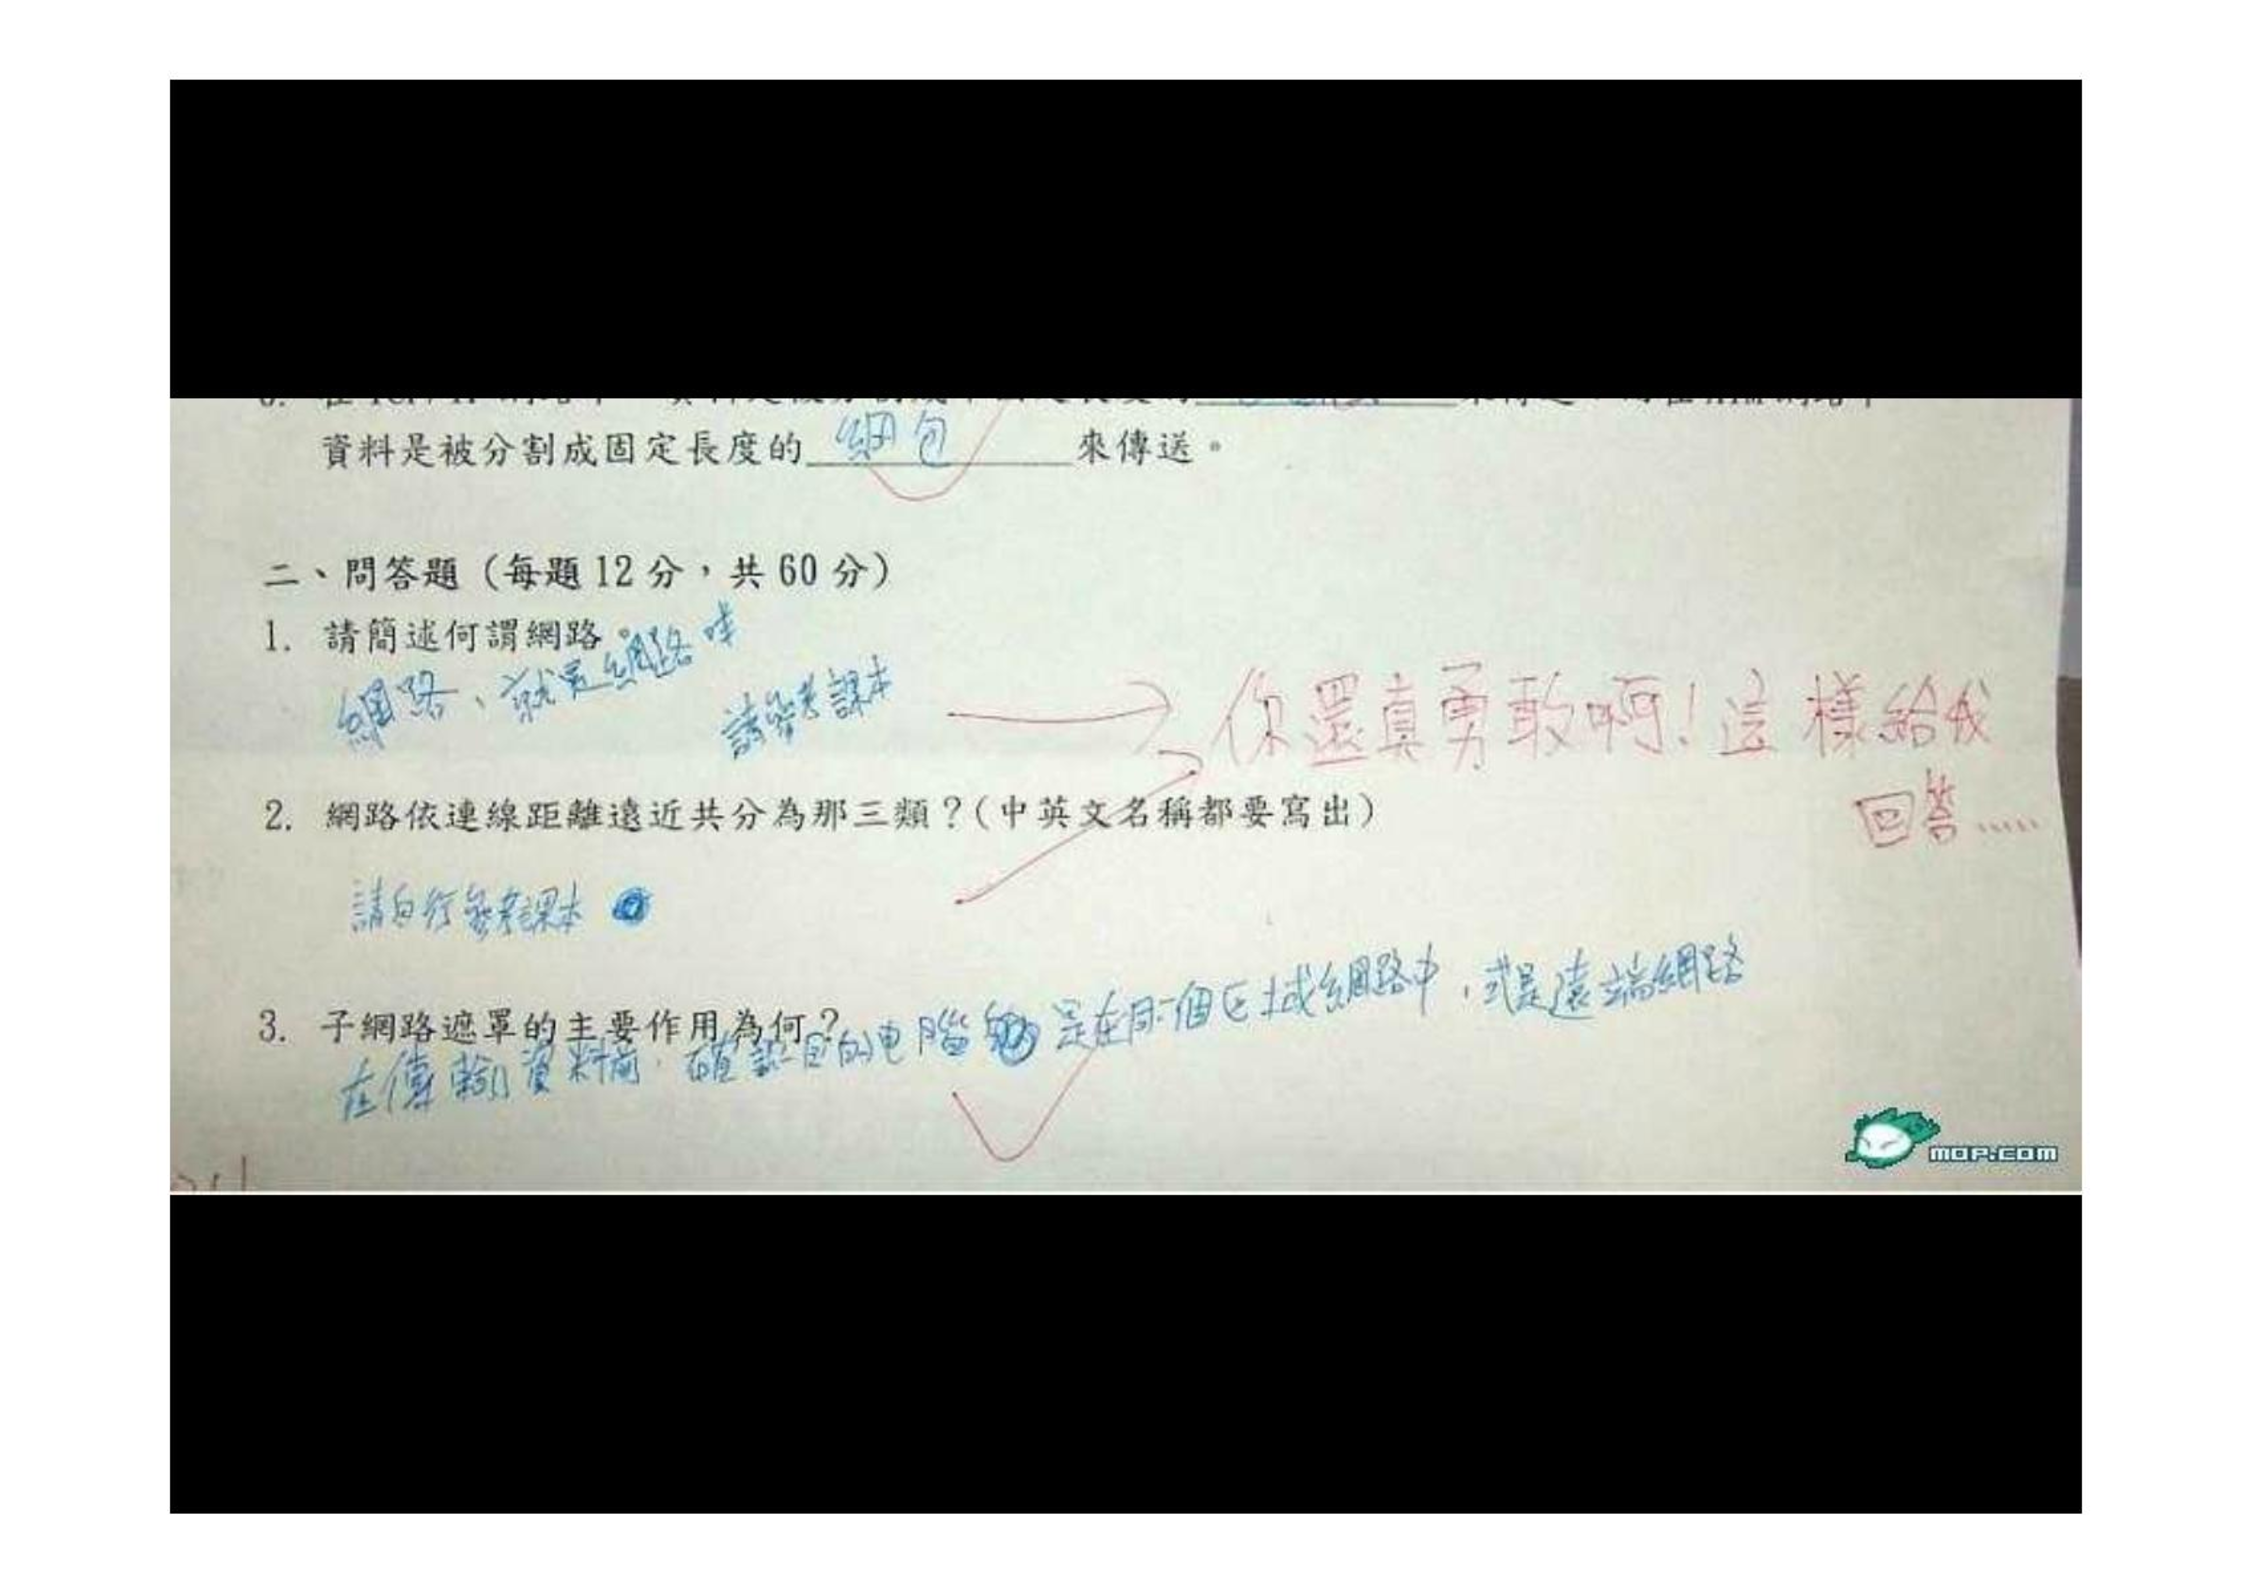 資料是被分割成固定長度的 細包 來傳送。
二、問答題（每題12分，共60分）
1. 請簡述何謂網路。
網路、就是網路哇
請參考課本
你還真勇敢啊!這樣給我
回答.....
2. 網路依連線距離遠近共分為那三類？(中英文名稱都要寫出)
請自行參考課本
3. 子網路遮罩的主要作用為何？
在傳輸資料前，確認目的电腦 是在同一個区域網路中，或是遠端網路
MOP.COM